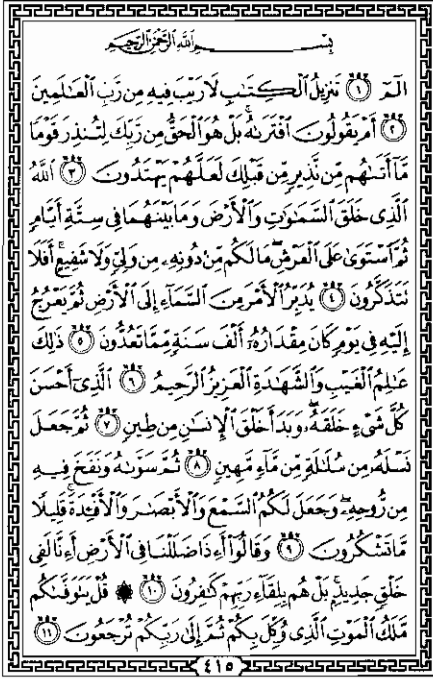 بِسْمِ ٱللَّهِ ٱلرَّحْمَٰنِ ٱلرَّحِيمِ
الٓمٓ ١ تَنزِيلُ ٱلْكِتَٰبِ لَا رَيْبَ فِيهِ مِن رَّبِّ ٱلْعَٰلَمِينَ
٢ أَمْ يَقُولُونَ ٱفْتَرَىٰهُ ۚ بَلْ هُوَ ٱلْحَقُّ مِن رَّبِّكَ لِتُنذِرَ قَوْمًا
مَّآ أَتَىٰهُم مِّن نَّذِيرٍ مِّن قَبْلِكَ لَعَلَّهُمْ يَهْتَدُونَ ٣ ٱللَّهُ
ٱلَّذِى خَلَقَ ٱلسَّمَٰوَٰتِ وَٱلْأَرْضَ وَمَا بَيْنَهُمَا فِى سِتَّةِ أَيَّامٍ
ثُمَّ ٱسْتَوَىٰ عَلَى ٱلْعَرْشِ ۖ مَا لَكُم مِّن دُونِهِۦ مِن وَلِىٍّ وَلَا شَفِيعٍ ۚ أَفَلَا
تَتَذَكَّرُونَ ٤ يُدَبِّرُ ٱلْأَمْرَ مِنَ ٱلسَّمَآءِ إِلَى ٱلْأَرْضِ ثُمَّ يَعْرُجُ
إِلَيْهِ فِى يَوْمٍ كَانَ مِقْدَارُهُۥٓ أَلْفَ سَنَةٍ مِّمَّا تَعُدُّونَ ٥ ذَٰلِكَ
عَٰلِمُ ٱلْغَيْبِ وَٱلشَّهَٰدَةِ ٱلْعَزِيزُ ٱلرَّحِيمُ ٦ ٱلَّذِىٓ أَحْسَنَ
كُلَّ شَىْءٍ خَلَقَهُۥ ۖ وَبَدَأَ خَلْقَ ٱلْإِنسَٰنِ مِن طِينٍ ٧ ثُمَّ جَعَلَ
نَسْلَهُۥ مِن سُلَٰلَةٍ مِّن مَّآءٍ مَّهِينٍ ٨ ثُمَّ سَوَّىٰهُ وَنَفَخَ فِيهِ
مِن رُّوحِهِۦ ۖ وَجَعَلَ لَكُمُ ٱلسَّمْعَ وَٱلْأَبْصَٰرَ وَٱلْأَفْـِٔدَةَ ۚ قَلِيلًا
مَّا تَشْكُرُونَ ٩ وَقَالُوٓا۟ أَءِذَا ضَلَلْنَا فِى ٱلْأَرْضِ أَءِنَّا لَفِى
خَلْقٍ جَدِيدٍۭ ۚ بَلْ هُم بِلِقَآءِ رَبِّهِمْ كَٰفِرُونَ ١٠ ۞ قُلْ يَتَوَفَّىٰكُم
مَّلَكُ ٱلْمَوْتِ ٱلَّذِى وُكِّلَ بِكُمْ ثُمَّ إِلَىٰ رَبِّكُمْ تُرْجَعُونَ ١١
٤١٥